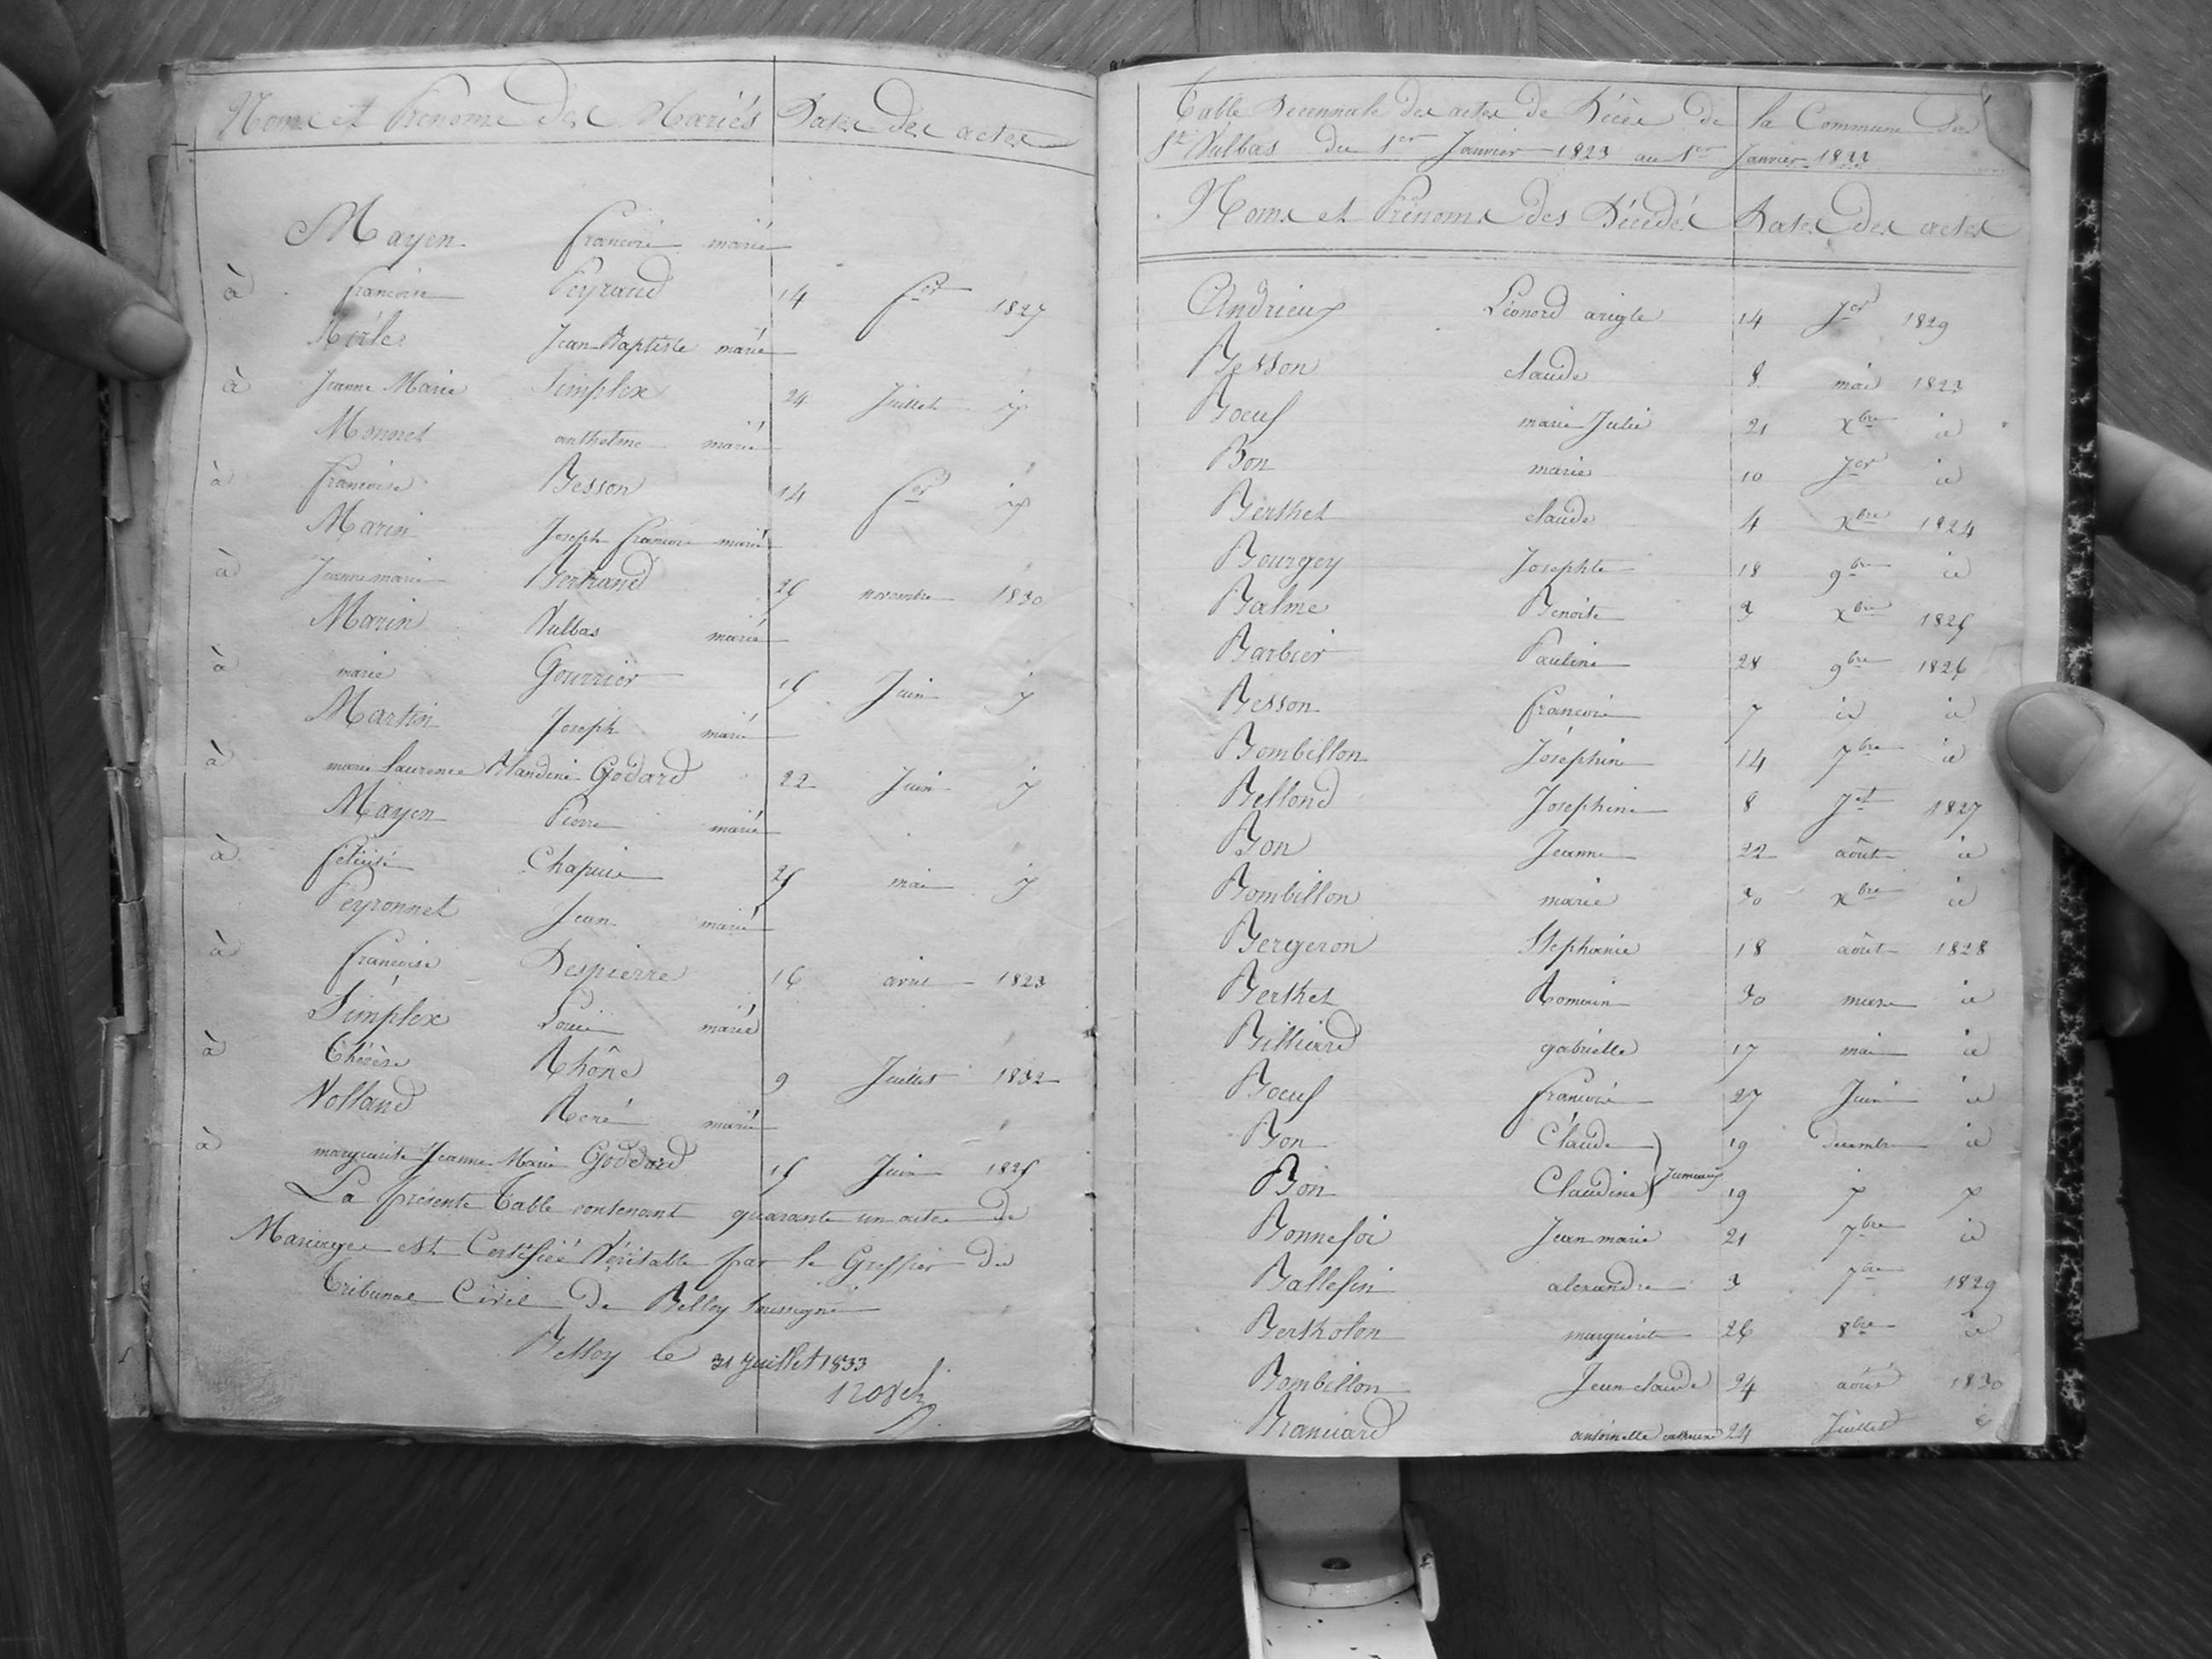 Noms et Prénoms des Mariés Date des actes
Mayen françois marié
à françoise Peyraud 14 fer 1827
Merle Jean Baptiste marié
à Jeanne Marie Simplex 24 Juillet
Monnet anthelme marié
à françoise Besson 14 fer
Marin Joseph françois marié
à Jeanne marie Bertrand novembre 1830
Marin Vulbas marié
à marie Gourrier Juin
Martin Joseph marié
à marie laurence Blandine Godard 22 Juin
Mayen Pierre marié
à félicité Chapuis mai
Peyronnet Jean marié
à françoise Despierre 16 avril 1823
Simplex Louis marié
à Thérèse Rhône 9 Juillet 1832
Volland René marié
à marguerite Jeanne Marie Goddard Juin 1825
La présente Table contenant quarante un actes de
Mariages est Certifiée Véritable par le Greffier du
Tribunal Civil de Belley soussigné
Belley le 31 Juillet 1833
Table Decennale des actes de Décès de la Commune de
St Vulbas du 1er Janvier 1823 au 1er Janvier 1833
Noms et Prénoms des Décédés Date des actes
Andrieux Léonard 14 Jer 1829
Besson claude 8 mai 1823
Boeuf marie Julie 21 xbre id
Bon marie 10 Jer id
Berthet claude 4 xbre 1824
Bourgey Josephte 18 9bre id
Balme Benoite 3 xbre 1825
Barbier Pauline 28 9bre 1826
Besson françois 7 id id
Bombillon Joséphine 14 7bre id
Bellond Joséphine 8 Jet 1827
Bon Jeanne 22 août id
Bombillon marie 30 xbre id
Bergeron Stephanie 18 août 1828
Berthet Romain 30 mars id
Billiard gabrielle 17 mai id
Boeuf françois 27 Juin id
Bon Claude 19 decembre id
Bon Claudine Jumeaux 19
Bonnefoi Jean marie 21 7bre id
Ballefin alexandre 3 7bre 1829
Bertholon marguerite 26 8bre id
Bombillon Jean claude 24 août 1830
Branciard antoinette catherine 24 Juillet id